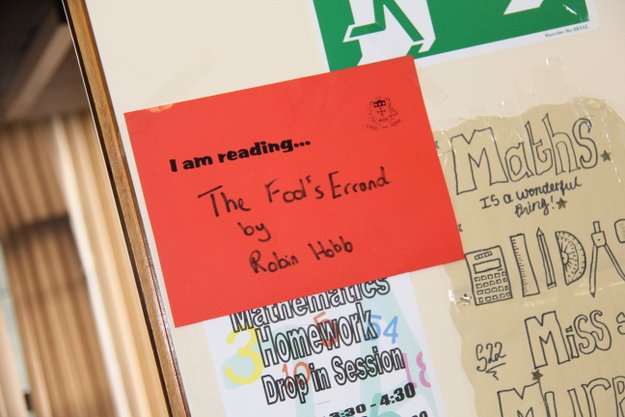 Reorder No
I am reading...
The Fool's Errand
by
Robin Hobb
Maths
IS a wonderful
thing!
Mathematics
Homework
Drop in Session
3:30 - 4:30
3
10
5
54
18
522
Miss